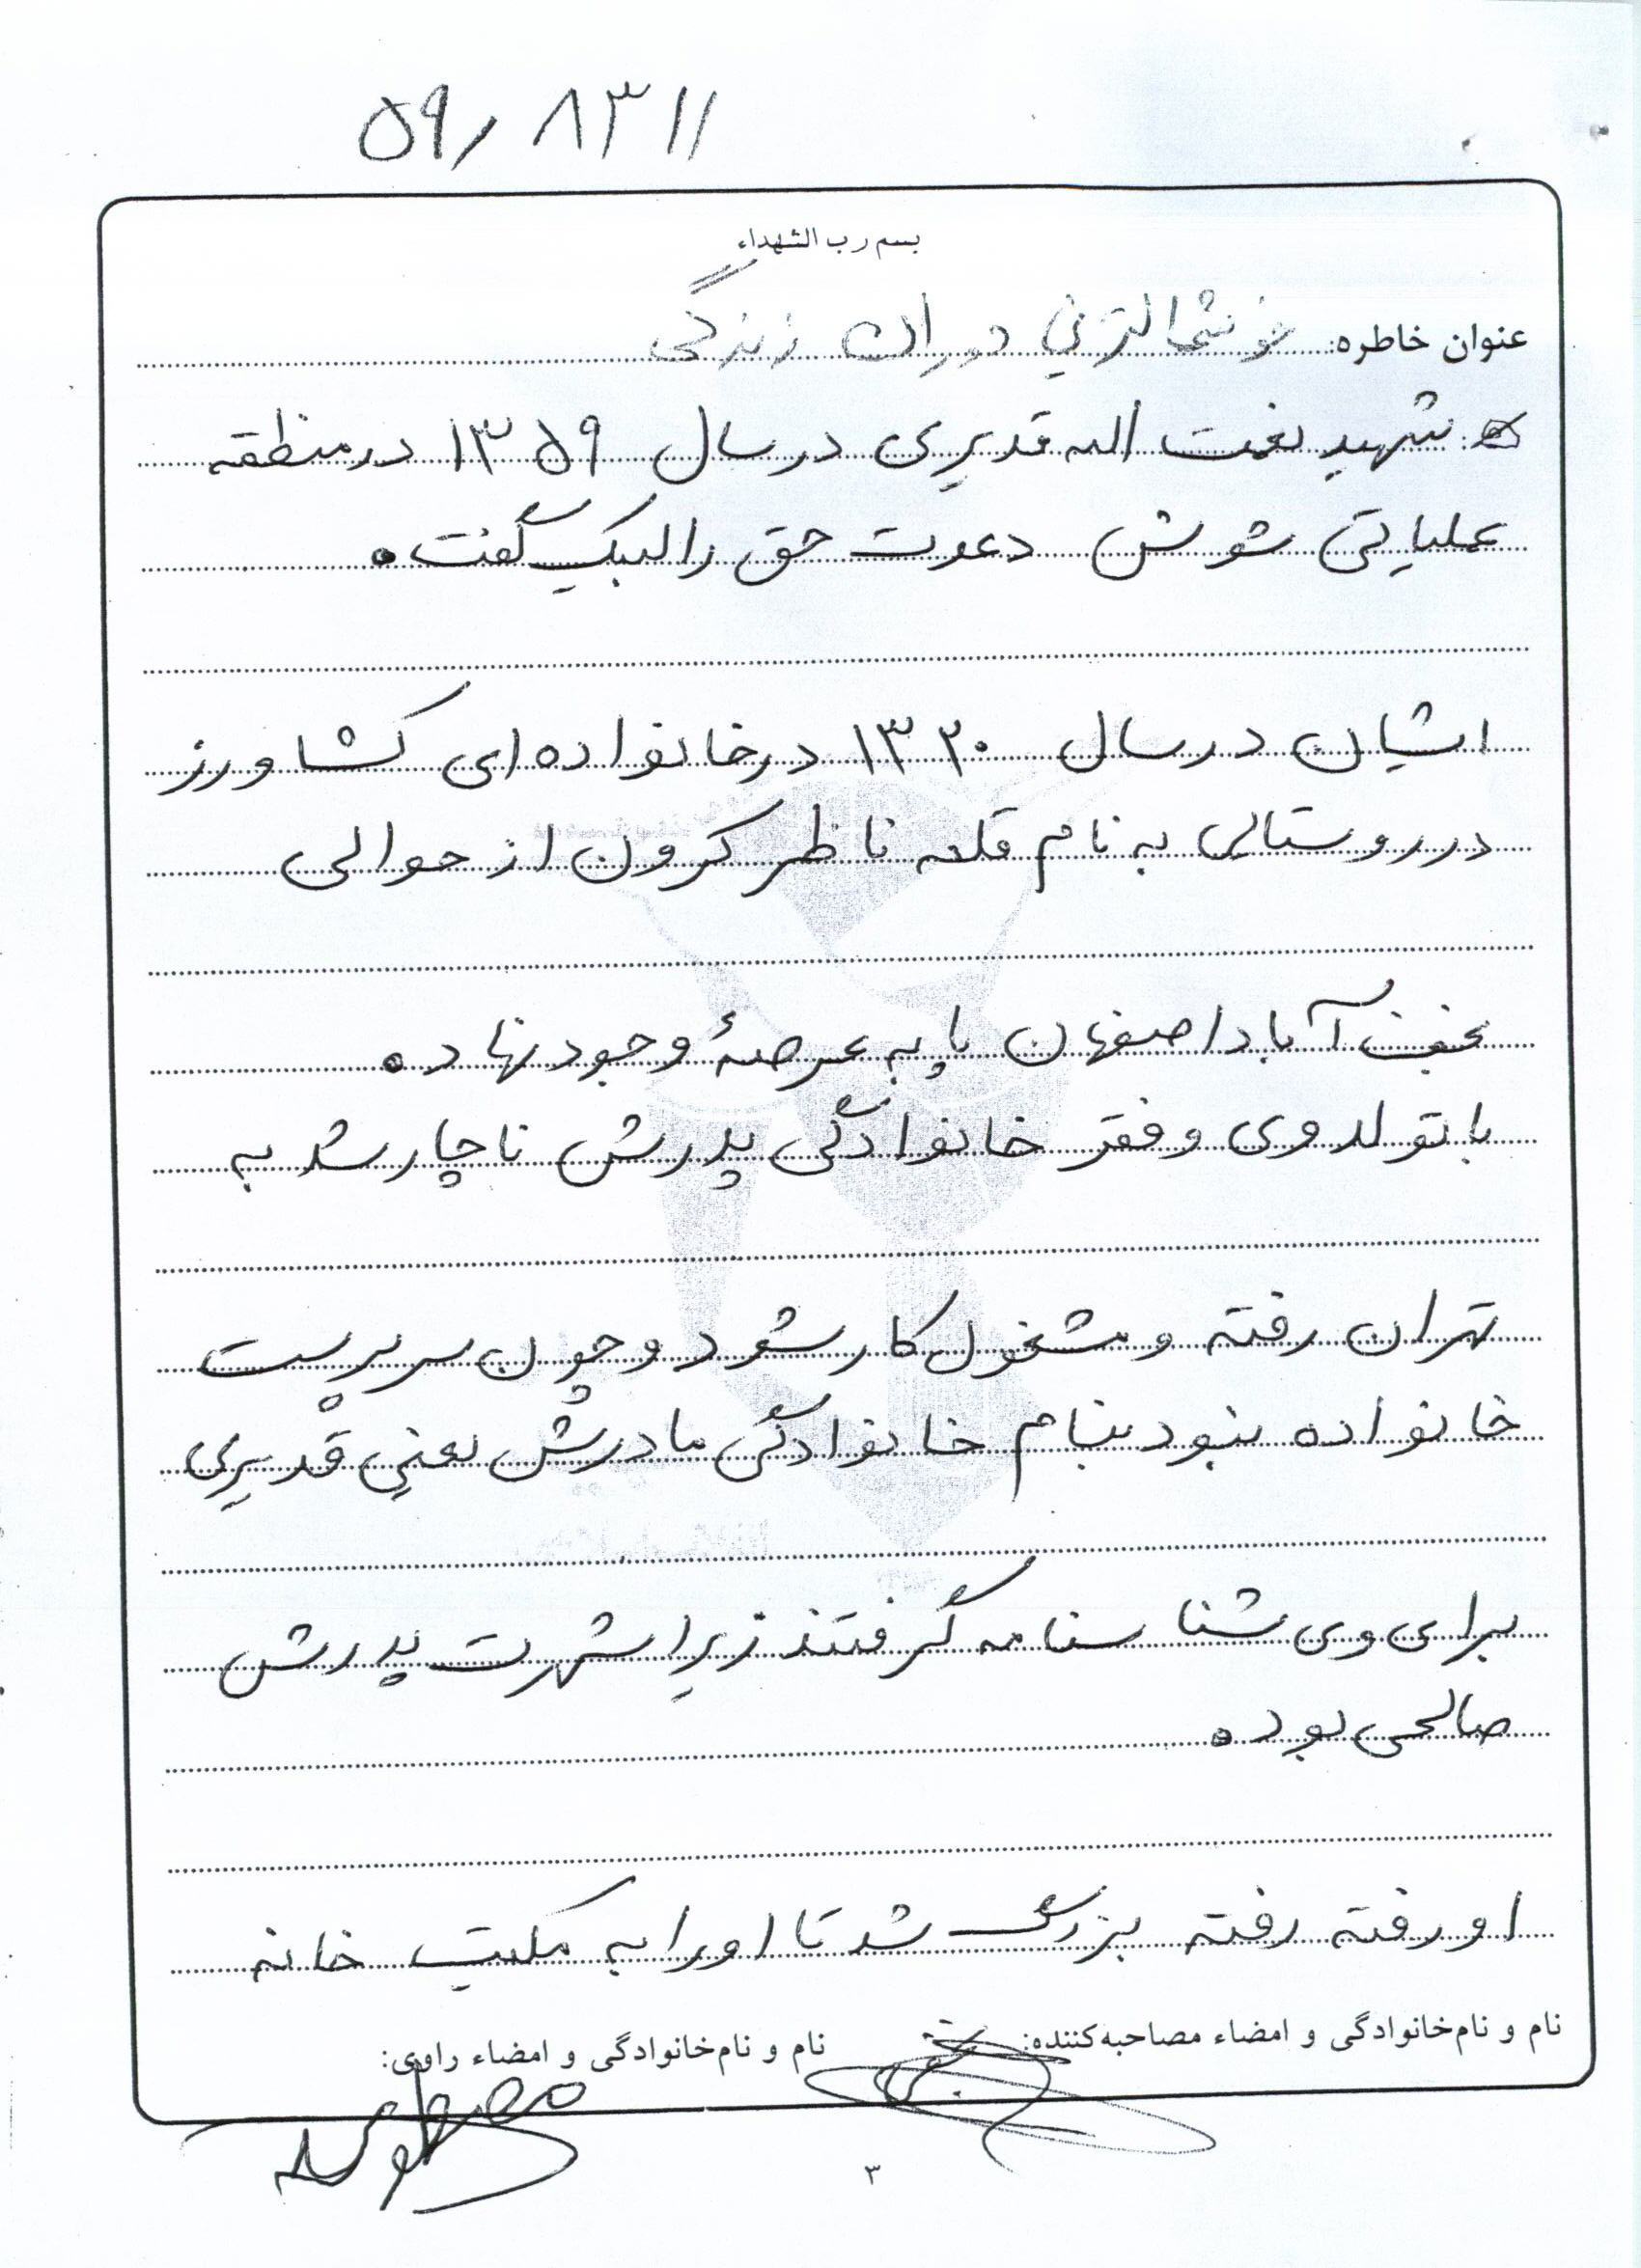 ۵۹/۸۳۱۱
بسم رب الشهداء
عنوان خاطره: خوشحالترین دوران زندگی
شهید نعمت اله قدیری در سال ۱۳۵۹ در منطقه
عملیاتی شوش دعوت حق را لبیک گفت.
ایشان در سال ۱۳۲۰ در خانواده ای کشاورز
در روستایی به نام قلعه ناظر کرون از حوالی
نجف آباد اصفهان پا به عرصهٔ وجود نهاد.
با تولد وی و فقر خانوادگی پدرش ناچار شد به
تهران رفته و مشغول کار شود و چون سرپرست
خانواده نبود بنام خانوادگی مادرش یعنی قدیری
برای وی شناسنامه گرفتند زیرا شهرت پدرش
صالحی بود.
او رفته رفته بزرگ شد تا او را به مکتب خانه
نام و نام‌خانوادگی و امضاء مصاحبه‌کننده:
نام و نام‌خانوادگی و امضاء راوی:
۳